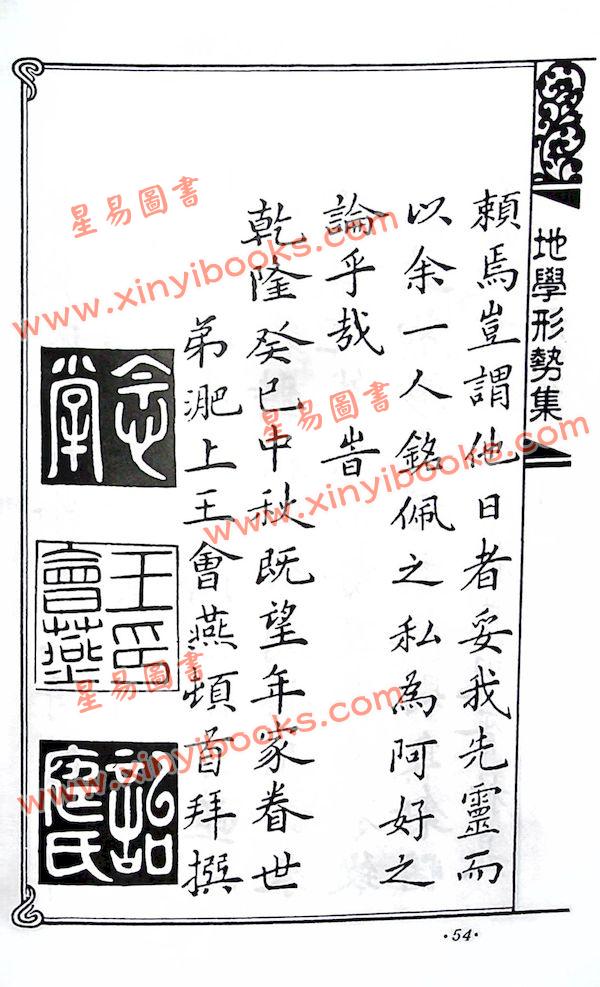 地學形勢集
賴焉豈謂他日者妥我先靈而
以余一人銘佩之私為阿好之
論乎哉 旹
乾隆癸巳中秋既望年家眷世
弟淝上王會燕頓首拜撰
王印會燕
·54·
星易圖書
www.xinyibooks.com
星易圖書
www.xinyibooks.com
星易圖書
www.xinyibooks.com